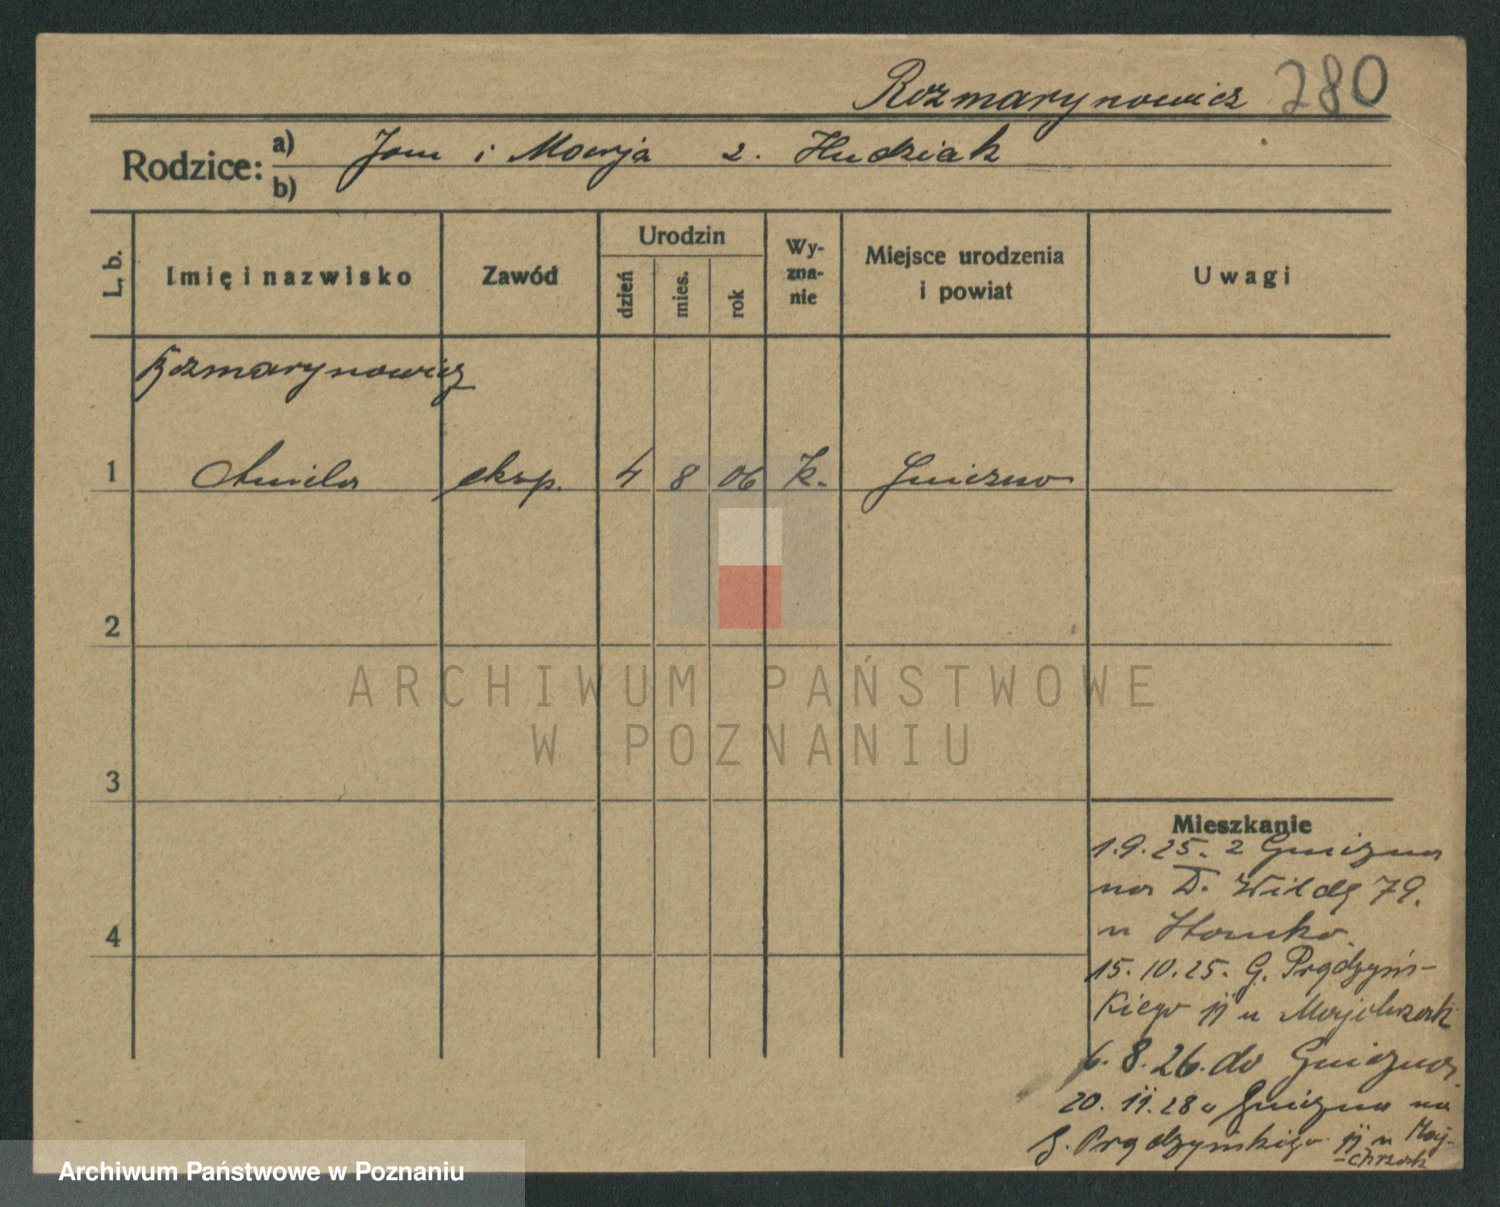 Rozmarynowicz 280
Rodzice: a) Jan i Marja z. Hudziak
b)
L. b. Imię i nazwisko Zawód Urodzin dzień mies. rok Wyznanie Miejsce urodzenia i powiat Uwagi
Rozmarynowicz
1 Aniela eksp. 4 8 06 k. Gniezno
2
3
4
Mieszkanie
1.9.25. z Gniezna
na D. Wildę 79.
u Hanke
15.10.25. G. Prądzyń-
kiego 11 u Majchrzak
6.8.26. do Gniezna
20.11.28 z Gniezna na
G. Prądzyńskiego 11 u Maj-
-chrzak
ARCHIWUM PAŃSTWOWE
W POZNANIU
Archiwum Państwowe w Poznaniu